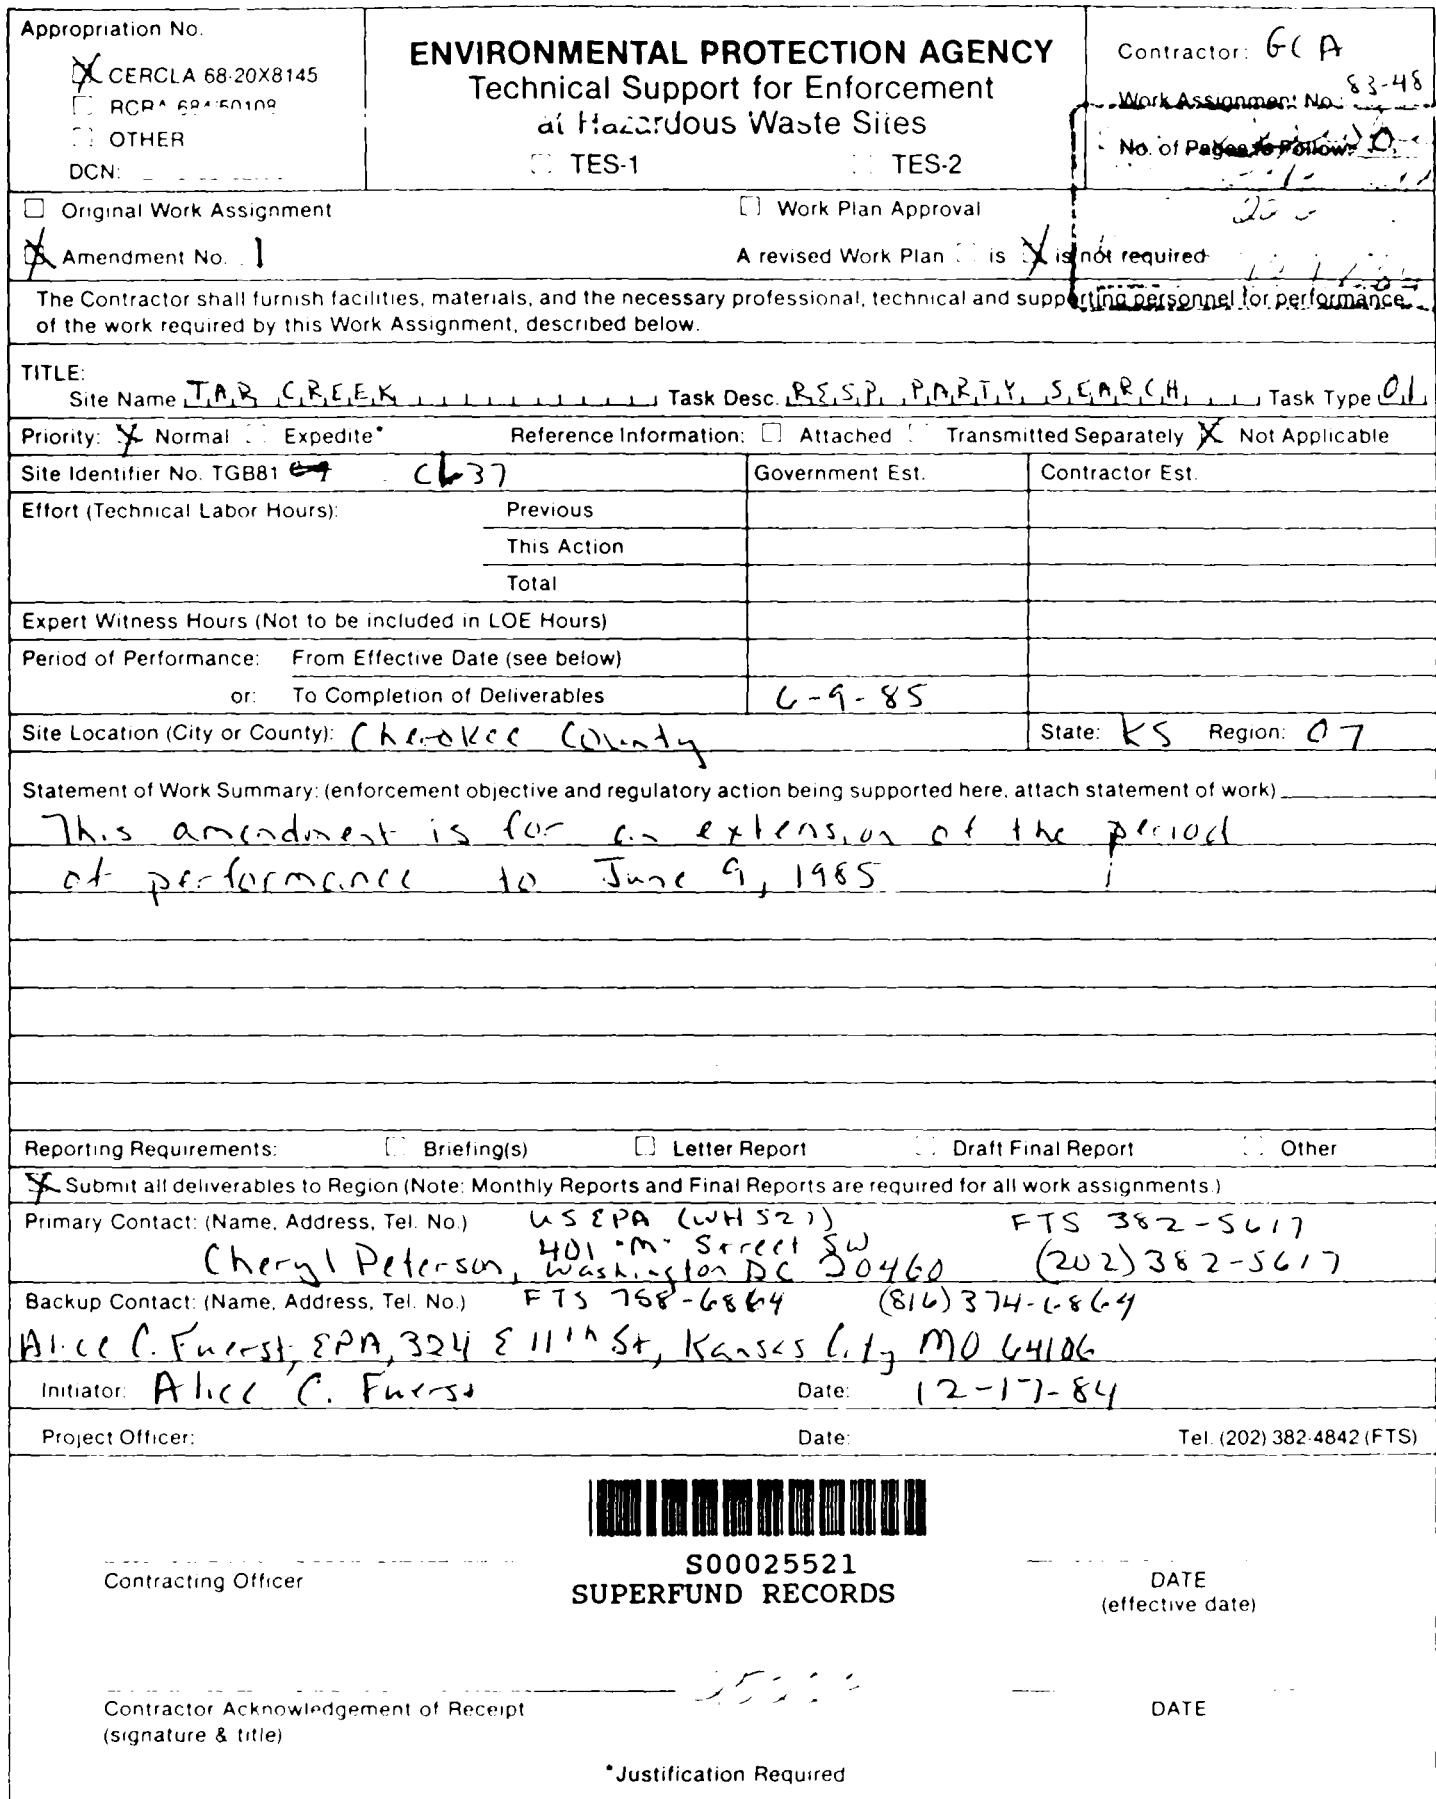 Appropriation No.
CERCLA 68-20X8145
OTHER
DCN:
ENVIRONMENTAL PROTECTION AGENCY
Technical Support for Enforcement
at Hazardous Waste Sites
TES-1 TES-2
Contractor: GCA
Work Assignment No. 83-48
No. of Pages to Follow: 0
Original Work Assignment Work Plan Approval
Amendment No. 1 A revised Work Plan is is not required
The Contractor shall furnish facilities, materials, and the necessary professional, technical and supporting personnel for performance
of the work required by this Work Assignment, described below.
TITLE:
Site Name TAR CREEK Task Desc. RESP. PARTY SEARCH Task Type 01
Priority: Normal Expedite* Reference Information: Attached Transmitted Separately Not Applicable
Site Identifier No. TGB81 C637 Government Est. Contractor Est.
Effort (Technical Labor Hours): Previous
This Action
Total
Expert Witness Hours (Not to be included in LOE Hours)
Period of Performance: From Effective Date (see below)
or: To Completion of Deliverables 6-9-85
Site Location (City or County): Cherokee County State: KS Region: 07
Statement of Work Summary: (enforcement objective and regulatory action being supported here, attach statement of work)
This amendment is for an extension of the period
of performance to June 9, 1985
Reporting Requirements: Briefing(s) Letter Report Draft Final Report Other
Submit all deliverables to Region (Note: Monthly Reports and Final Reports are required for all work assignments.)
Primary Contact: (Name, Address, Tel. No.) USEPA (WH527) FTS 382-5617
Cheryl Peterson, 401 "M" Street SW
Washington DC 20460 (202) 382-5617
Backup Contact: (Name, Address, Tel. No.) FTS 758-6864 (816) 374-6864
Alice C. Fuerst, EPA, 324 E 11th St, Kansas City MO 64106
Initiator: Alice C. Fuerst Date: 12-17-84
Project Officer: Date: Tel. (202) 382-4842 (FTS)
S00025521
SUPERFUND RECORDS
Contracting Officer DATE
(effective date)
Contractor Acknowledgement of Receipt DATE
(signature & title)
*Justification Required